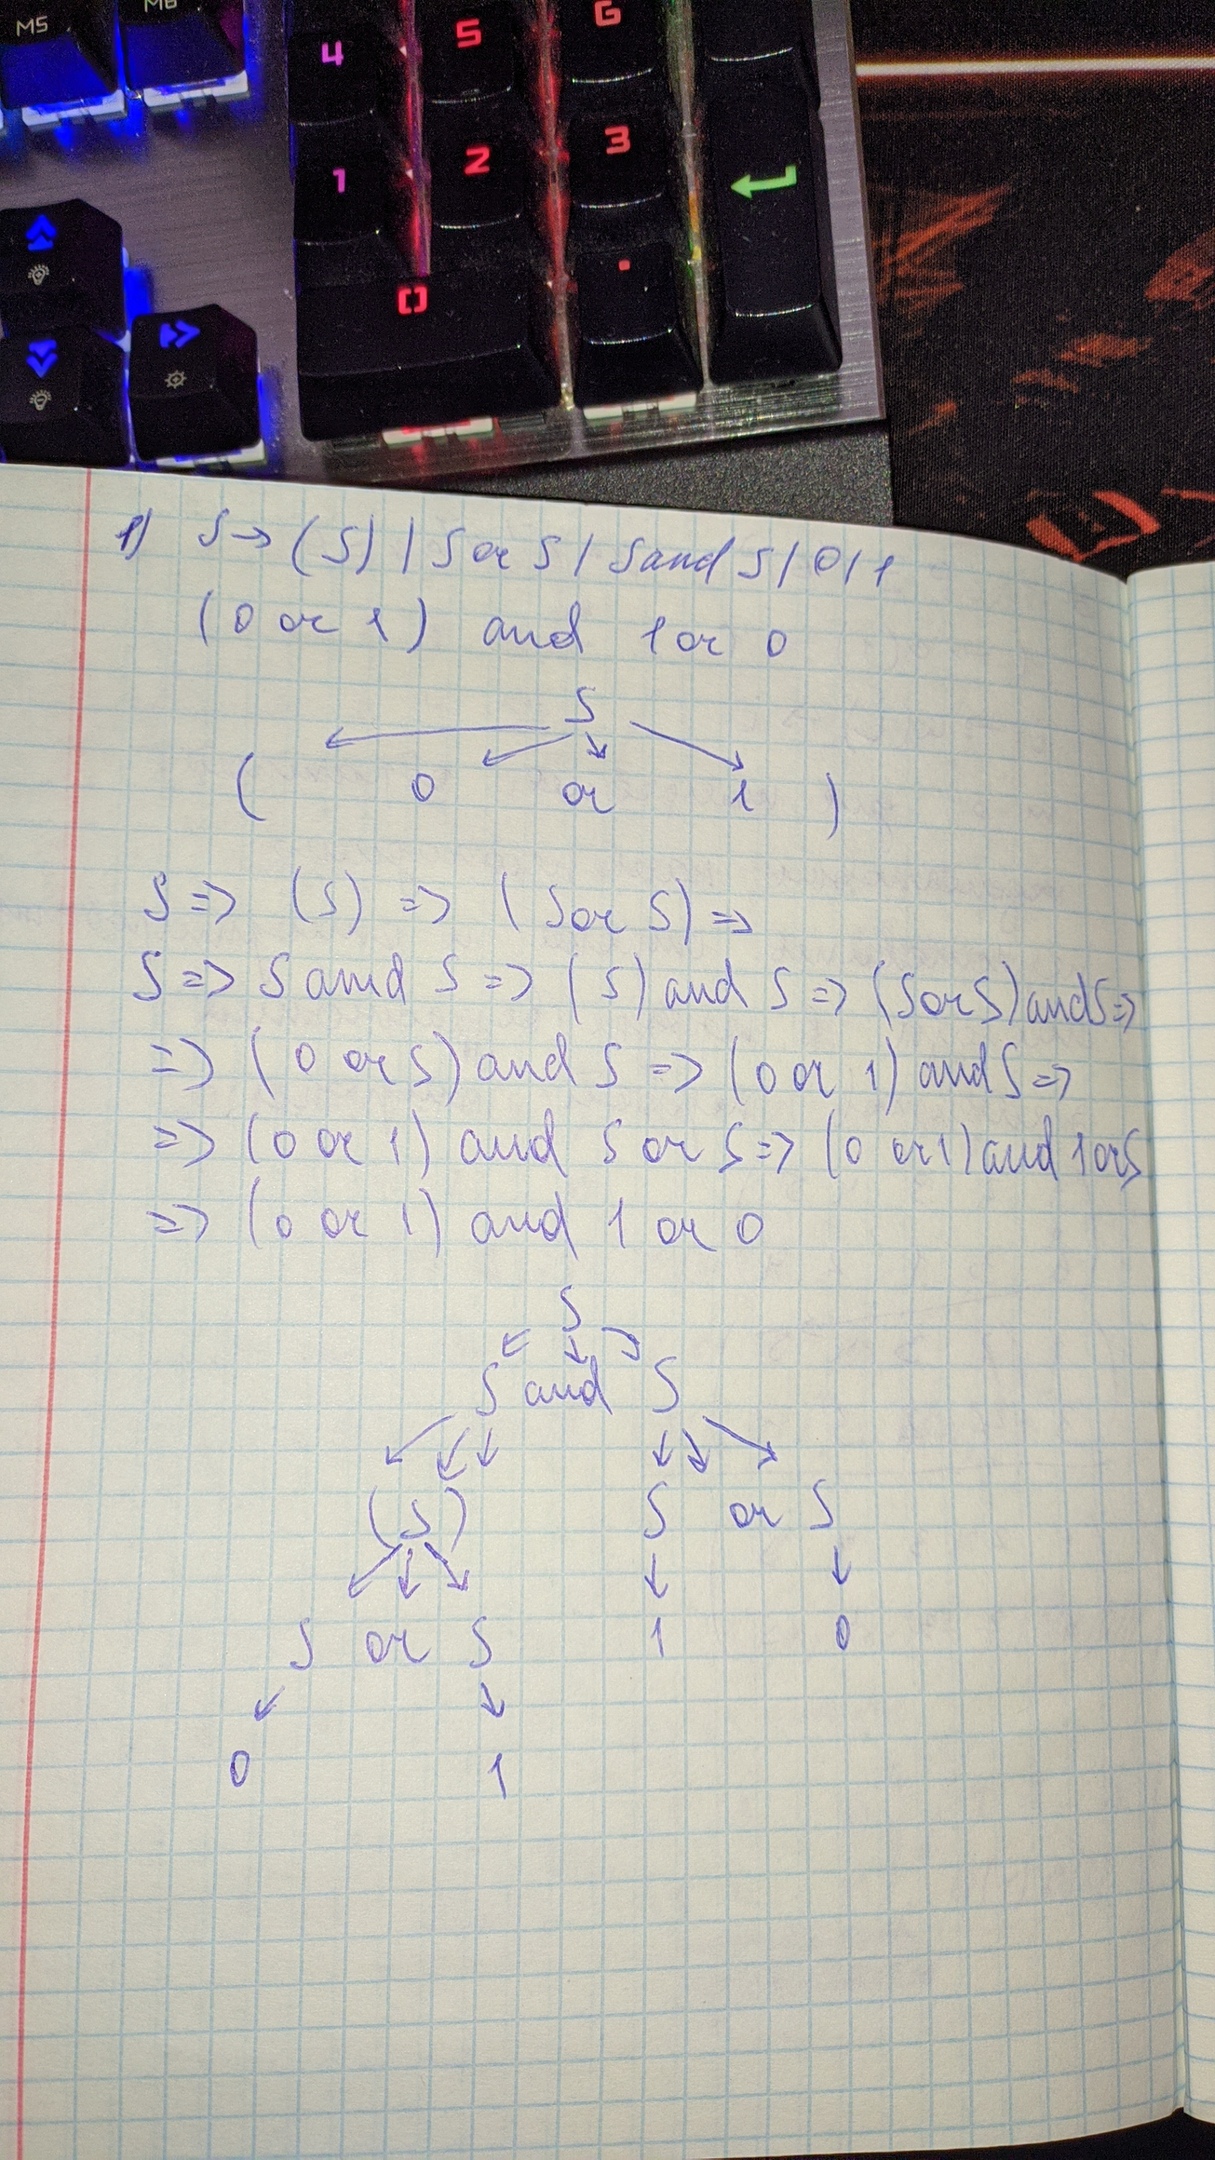 M5 M6 4 5 6
1 2 3
0 .
1) S → (S) | S or S | S and S | 0 | 1
(0 or 1) and 1 or 0
S
( 0 or 1 )
S => (S) => (S or S) =>
S => S and S => (S) and S => (S or S) and S =>
=> (0 or S) and S => (0 or 1) and S =>
=> (0 or 1) and S or S => (0 or 1) and 1 or S
=> (0 or 1) and 1 or 0
S
S and S
(S) S or S
S or S 1 0
0 1